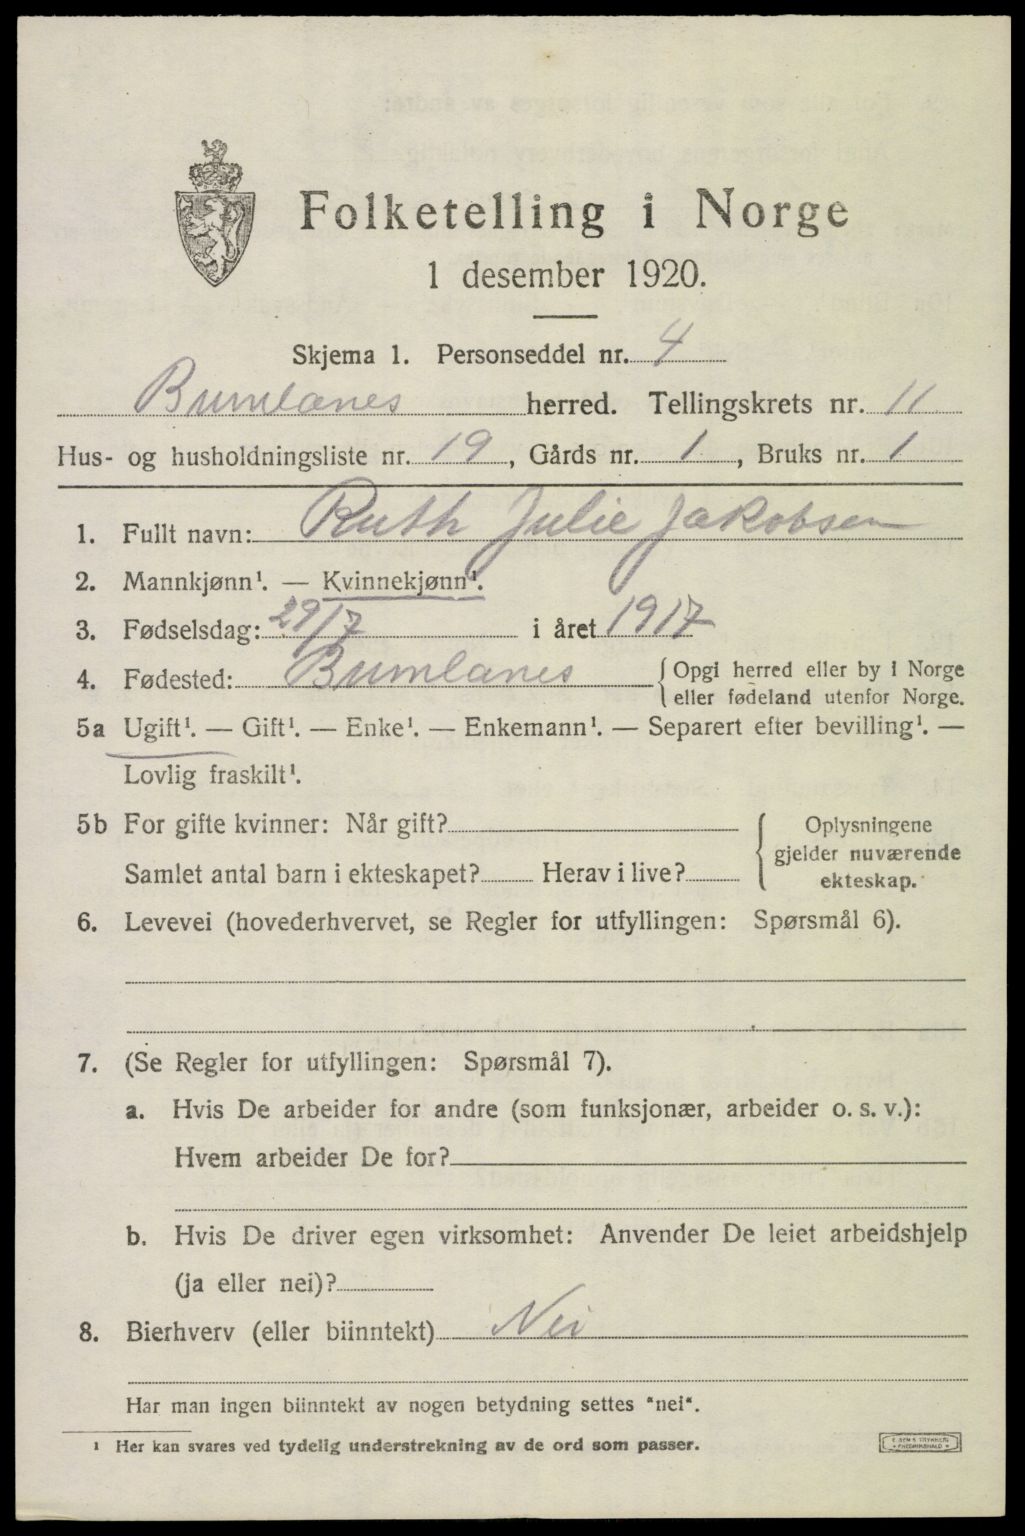 Folketelling i Norge
1 desember 1920.
Skjema 1. Personseddel nr. 4
Brunlanes herred. Tellingskrets nr. 11
Hus- og husholdningsliste nr. 19, Gårds nr. 1, Bruks nr. 1
1. Fullt navn: Ruth Julie Jakobsen
2. Mannkjønn¹. — Kvinnekjønn¹.
3. Fødselsdag: 29/7 i året 1917
4. Fødested: Brunlanes { Opgi herred eller by i Norge
eller fødeland utenfor Norge.
5a Ugift¹. — Gift¹. — Enke¹. — Enkemann¹. — Separert efter bevilling¹. —
Lovlig fraskilt¹.
5b For gifte kvinner: Når gift?
Samlet antal barn i ekteskapet? Herav i live?
{ Oplysningene
gjelder nuværende
ekteskap.
6. Levevei (hovederhvervet, se Regler for utfyllingen: Spørsmål 6).
7. (Se Regler for utfyllingen: Spørsmål 7).
a. Hvis De arbeider for andre (som funksjonær, arbeider o. s. v.):
Hvem arbeider De for?
b. Hvis De driver egen virksomhet: Anvender De leiet arbeidshjelp
(ja eller nei)?
8. Bierhverv (eller biinntekt) Nei
Har man ingen biinntekt av nogen betydning settes "nei".
¹ Her kan svares ved tydelig understrekning av de ord som passer.
E. SEMS TRYKKERI
• FREDRIKSHALD •